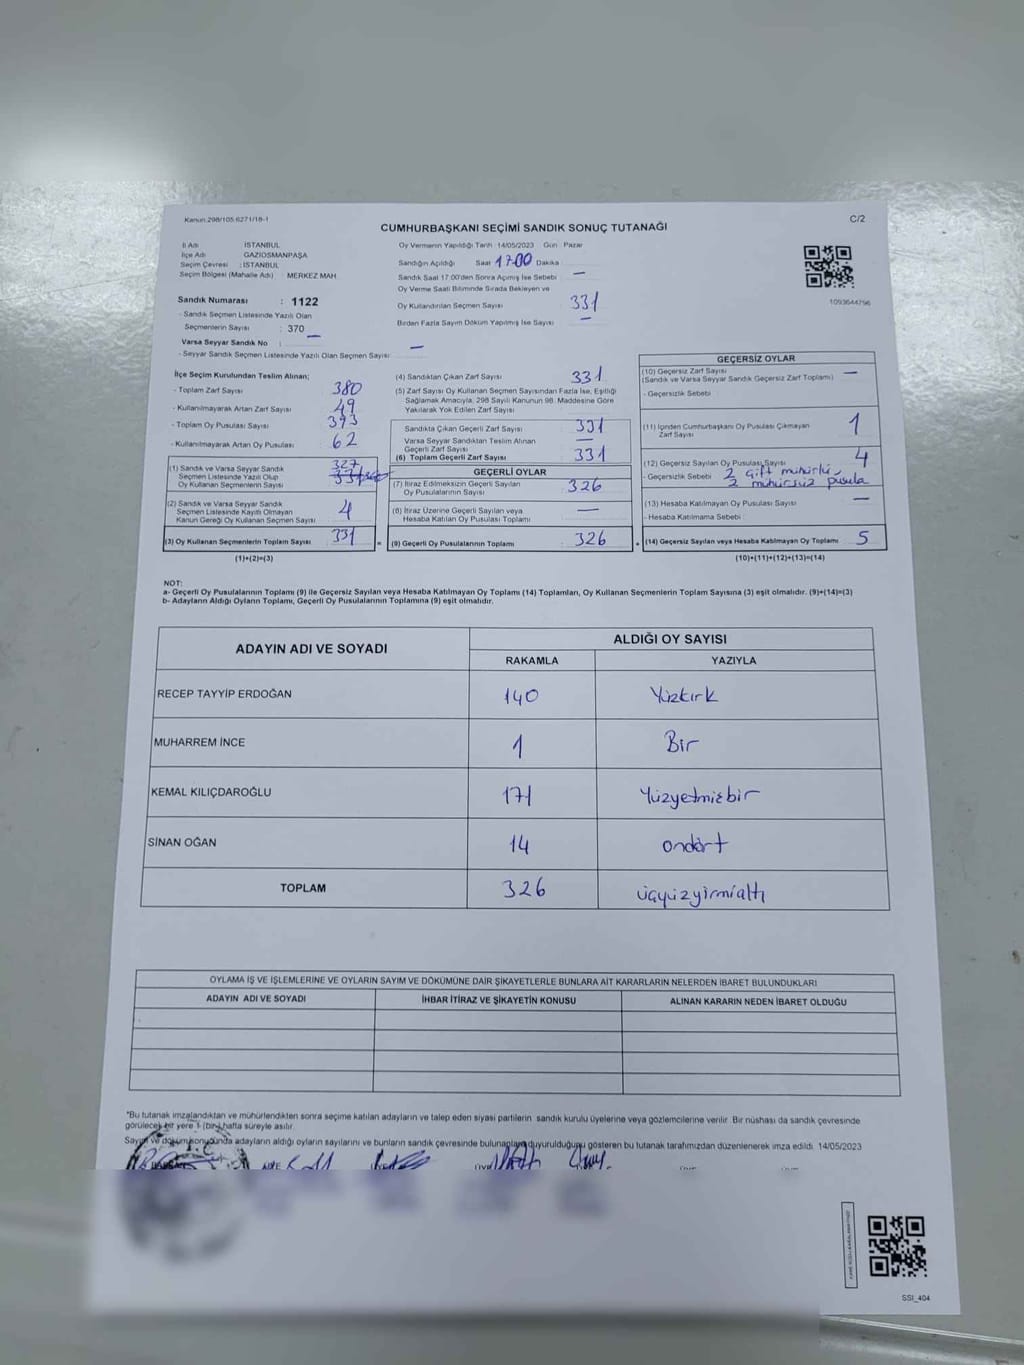 Kanun.298/105.6271/18-1
C/2
CUMHURBAŞKANI SEÇİMİ SANDIK SONUÇ TUTANAĞI
İl Adı : İSTANBUL
İlçe Adı : GAZİOSMANPAŞA
Seçim Çevresi : İSTANBUL
Seçim Bölgesi (Mahalle Adı) : MERKEZ MAH
Sandık Numarası : 1122
- Sandık Seçmen Listesinde Yazılı Olan
Seçmenlerin Sayısı : 370
Varsa Seyyar Sandık No : —
- Seyyar Sandık Seçmen Listesinde Yazılı Olan Seçmen Sayısı : —
Oy Vermenin Yapıldığı Tarih : 14/05/2023 Gün : Pazar
Sandığın Açıldığı Saat 17:00 Dakika
Sandık Saat 17:00'den Sonra Açımış İse Sebebi : —
Oy Verme Saati Bitiminde Sırada Bekleyen ve
Oy Kullandırılan Seçmen Sayısı 331
Birden Fazla Sayım Döküm Yapılmış İse Sayısı —
1093644796
İlçe Seçim Kurulundan Teslim Alınan;
- Toplam Zarf Sayısı 380
- Kullanılmayarak Artan Zarf Sayısı 49
- Toplam Oy Pusulası Sayısı 393
- Kullanılmayarak Artan Oy Pusulası 62
(1) Sandık ve Varsa Seyyar Sandık 327
Seçmen Listesinde Yazılı Olup
Oy Kullanan Seçmenlerin Sayısı
(2) Sandık ve Varsa Seyyar Sandık
Seçmen Listesinde Kayıtlı Olmayan 4
Kanun Gereği Oy Kullanan Seçmen Sayısı
(3) Oy Kullanan Seçmenlerin Toplam Sayısı 331
(1)+(2)=(3)
(4) Sandıktan Çıkan Zarf Sayısı 331
(5) Zarf Sayısı Oy Kullanan Seçmen Sayısından Fazla İse, Eşitliği
Sağlamak Amacıyla, 298 Sayılı Kanunun 98. Maddesine Göre
Yakılarak Yok Edilen Zarf Sayısı
Sandıkta Çıkan Geçerli Zarf Sayısı 331
Varsa Seyyar Sandıktan Teslim Alınan —
Geçerli Zarf Sayısı
(6) Toplam Geçerli Zarf Sayısı 331
GEÇERLİ OYLAR
(7) İtiraz Edilmeksizin Geçerli Sayılan
Oy Pusulalarının Sayısı 326
(8) İtiraz Üzerine Geçerli Sayılan veya
Hesaba Katılan Oy Pusulası Toplamı —
= (9) Geçerli Oy Pusulalarının Toplamı 326
GEÇERSİZ OYLAR
(10) Geçersiz Zarf Sayısı —
(Sandık ve Varsa Seyyar Sandık Geçersiz Zarf Toplamı)
- Geçersizlik Sebebi :
(11) İçinden Cumhurbaşkanı Oy Pusulası Çıkmayan 1
Zarf Sayısı
(12) Geçersiz Sayılan Oy Pusulası Sayısı 4
- Geçersizlik Sebebi : 2 çift mühürlü,
2 mühürsüz pusula
(13) Hesaba Katılmayan Oy Pusulası Sayısı —
- Hesaba Katılmama Sebebi :
+ (14) Geçersiz Sayılan veya Hesaba Katılmayan Oy Toplamı 5
(10)+(11)+(12)+(13)=(14)
NOT:
a- Geçerli Oy Pusulalarının Toplamı (9) ile Geçersiz Sayılan veya Hesaba Katılmayan Oy Toplamı (14) Toplamları, Oy Kullanan Seçmenlerin Toplam Sayısına (3) eşit olmalıdır. (9)+(14)=(3)
b- Adayların Aldığı Oyların Toplamı, Geçerli Oy Pusulalarının Toplamına (9) eşit olmalıdır.
ADAYIN ADI VE SOYADI
ALDIĞI OY SAYISI
RAKAMLA YAZIYLA
RECEP TAYYİP ERDOĞAN 140 Yüzkırk
MUHARREM İNCE 1 Bir
KEMAL KILIÇDAROĞLU 171 Yüzyetmişbir
SİNAN OĞAN 14 ondört
TOPLAM 326 üçyüzyirmialtı
OYLAMA İŞ VE İŞLEMLERİNE VE OYLARIN SAYIM VE DÖKÜMÜNE DAİR ŞİKAYETLERLE BUNLARA AİT KARARLARIN NELERDEN İBARET BULUNDUKLARI
ADAYIN ADI VE SOYADI İHBAR İTİRAZ VE ŞİKAYETİN KONUSU ALINAN KARARIN NEDEN İBARET OLDUĞU
*Bu tutanak imzalandıktan ve mühürlendikten sonra seçime katılan adayların ve talep eden siyasi partilerin sandık kurulu üyelerine veya gözlemcilerine verilir. Bir nüshası da sandık çevresinde
görülecek bir yere 1 (bir) hafta süreyle asılır.
Sayım ve döküm sonucunda adayların aldığı oyların sayılarını ve bunların sandık çevresinde bulunanlara duyurulduğunu gösteren bu tutanak tarafımızdan düzenlenerek imza edildi. 14/05/2023
SSI_404